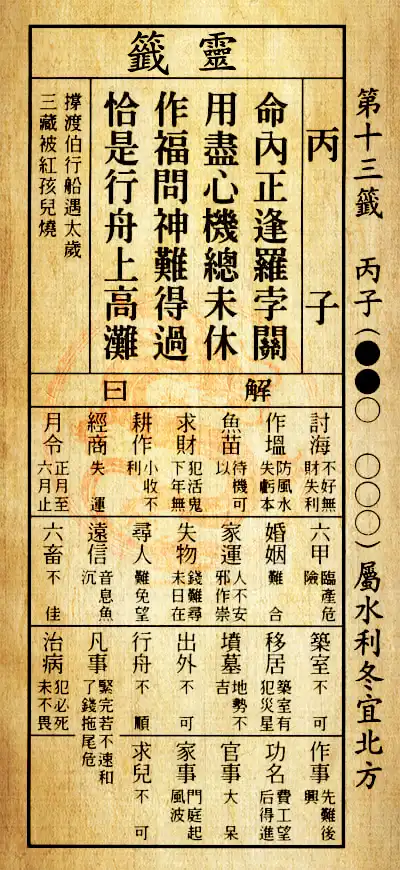 第十三籤 丙子(●●○ ○○○)屬水利冬宜北方
靈籤
丙子
命內正逢羅孛關
用盡心機總未休
作福問神難得過
恰是行舟上高灘
撐渡伯行船遇太歲
三藏被紅孩兒燒
解曰
討海 不好無財失利
作塭 防風水失虧本
魚苗 待機可以
求財 犯活鬼下年無
耕作 小收不利
經商 失運
月令 正月至六月止
六甲 臨產危險
婚姻 難合
家運 人不安邪作祟
失物 錢難尋未日在
尋人 難免望
遠信 音息魚沉
六畜 不佳
築室 不可
移居 築室有犯災星
墳墓 地勢不吉
出外 不可
行舟 不順
凡事 緊完若不速和了錢拖尾危
治病 犯必死未不畏
作事 先難後興
功名 費工望后得進
官事 大呆
家事 門庭起風波
求兒 不可